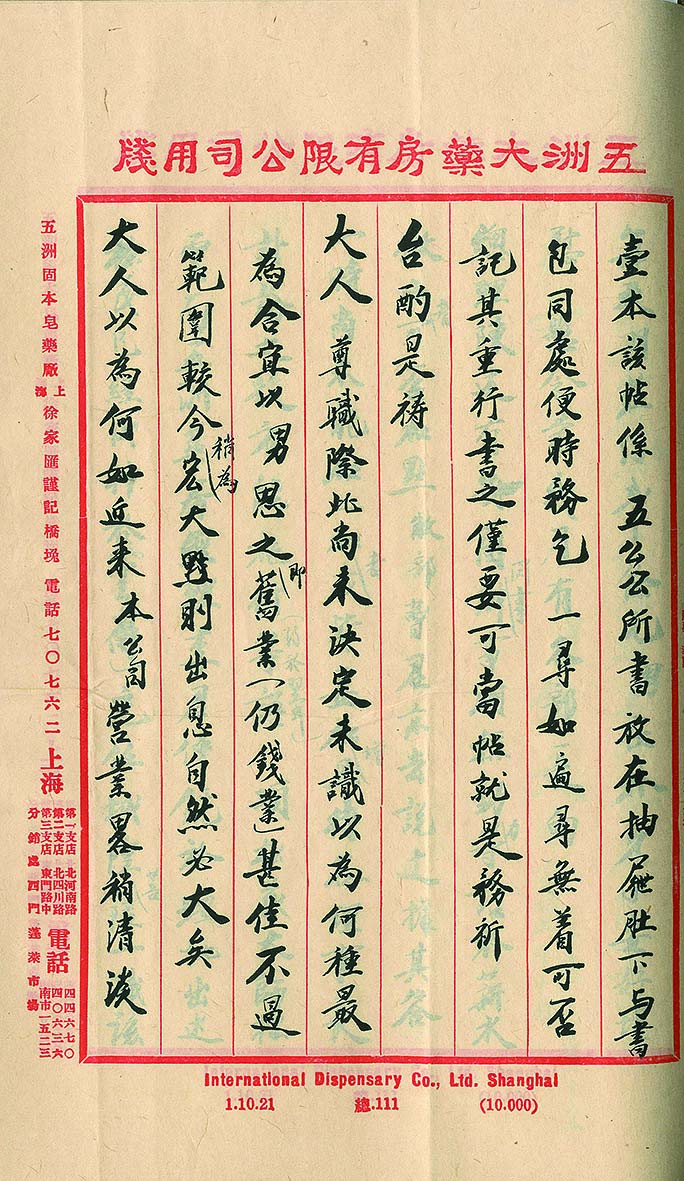 五洲大藥房有限公司用牋
壹本該帖係 五公公所書放在抽屜肚下与書
包同處便時務乞一尋如遍尋無着可否
記其重行書之僅要可當帖就是務祈
台酌是祷
大人 尊職際此尚未決定未識以為何種最
為合宜以男思之卽舊業（仍錢業）甚佳不過
範圍較今稍為宏大點則出息自然必大矣
大人以為何如近来 本公司 營業畧稍清淡
五洲固本皂藥廠 上海 徐家匯謹記橋堍 電話七〇七六二
上海
第一支店 北河南路
第二支店 北四川路
第三支店 東門路中
分銷處 西門蓬萊市場
電話
四四六七〇
四〇六三六
南市一五二三
International Dispensary Co., Ltd. Shanghai
1.10.21 總.111 (10.000)